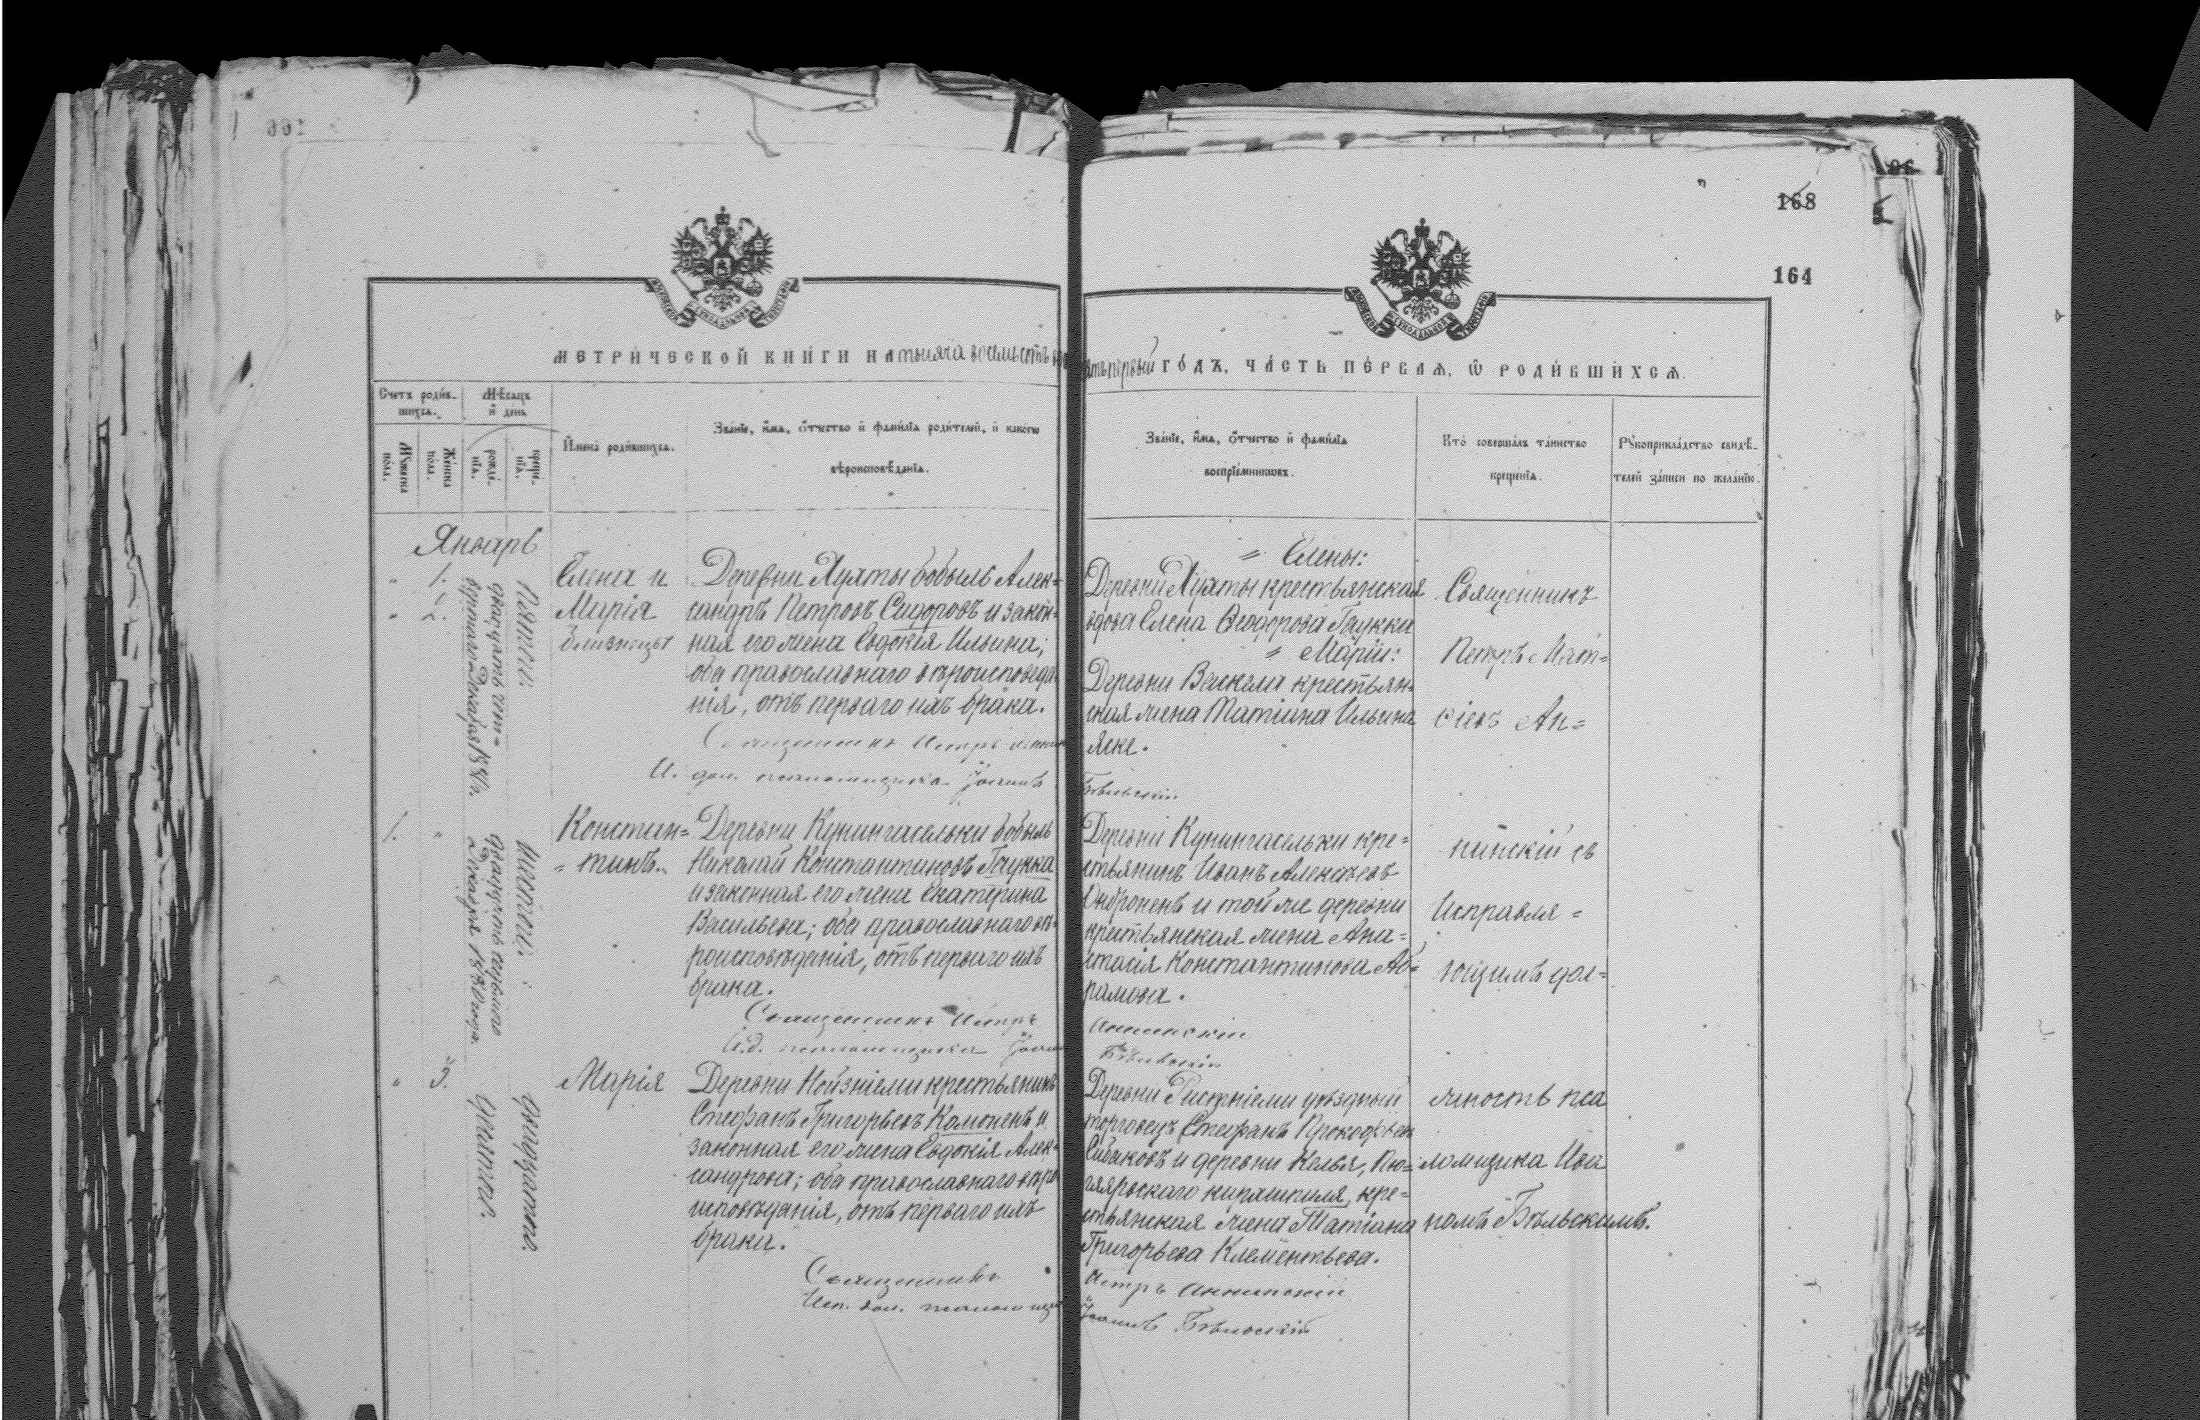 168
164
МЕТРИЧЕСКОЙ КНИГИ НА тысяча восемьсотъ
первый ГОДЪ, ЧАСТЬ ПЕРВАЯ, Ѡ РОДИВШИХСЯ.
Счетъ родив-
шихся.
Мѣсяцъ
и день
Мужеска
пола.
Женска
пола.
рожде-
нія.
креще-
нія.
Имена родившихся.
Званіе, имя, отчество и фамилія родителей, и какого
вѣроисповѣданія.
Званіе, имя, отчество и фамилія
воспріемниковъ.
Кто совершалъ таинство
крещенія.
Рукоприкладство свидѣ-
телей записи по желанію.
Январь
" 1.
" 2.
двадцать чет-
вертаго Декабря
Пятаго.
Елена и
Марія
близнецы
Деревни Ляяты бобыль Алек=
сандръ Петровъ Сидоровъ и закон=
ная его жена Евдокія Ильина;
оба православнаго вѣроисповѣда=
нія, отъ перваго ихъ брака.
Священникъ Петръ
И. дол. псаломщика Іоаннъ
" Елены:
Деревни Ляяты крестьянская
вдова Елена Ѳеодорова Гаукка
" Маріи:
Деревни Васкела крестьян=
ская жена Татіана Ильина
Яске.
Бѣльскій
Священникъ
Петръ Мат=
ѳіевъ Ан=
1. "
двадцать перваго
Декабря 1880 года.
Шестаго.
Констан=
= тинъ.
Деревни Кунингасельки бобыль
Николай Константиновъ Гаукка
и законная его жена Екатерина
Васильева; оба православнаго вѣ=
роисповѣданія, отъ перваго ихъ
брака.
Священникъ Петръ
И.д. псаломщика Іоаннъ
Деревни Кунингасельки кре=
стьянинъ Иванъ Алексѣевъ
и той же деревни
крестьянская жена Ана=
стасія Константинова Аб=
рамова.
Аннинскій
Бѣльскій
нинскій съ
Исправля =
ющимъ дол=
" 3.
Девятаго.
Двадцатаго.
Марія
Деревни Нойзніеми крестьянинъ
Стефанъ Григорьевъ Комоненъ и
законная его жена Евдокія Алек=
сандрова; оба православнаго вѣро
исповѣданія, отъ перваго ихъ
брака.
Священникъ
Исп. дол. псаломщика
Деревни Ристніеми уѣздный
торговецъ Стефанъ Прокофьевъ
Сибаковъ и деревни Келья, Пю=
хяярвскаго кирхшпиля, кре=
стьянская жена Татіана
Григорьева Клементьева.
Петръ Аннинскій
Іоаннъ Бѣльскій
жность пса
ломщика Иоа
номъ Бѣльскимъ.